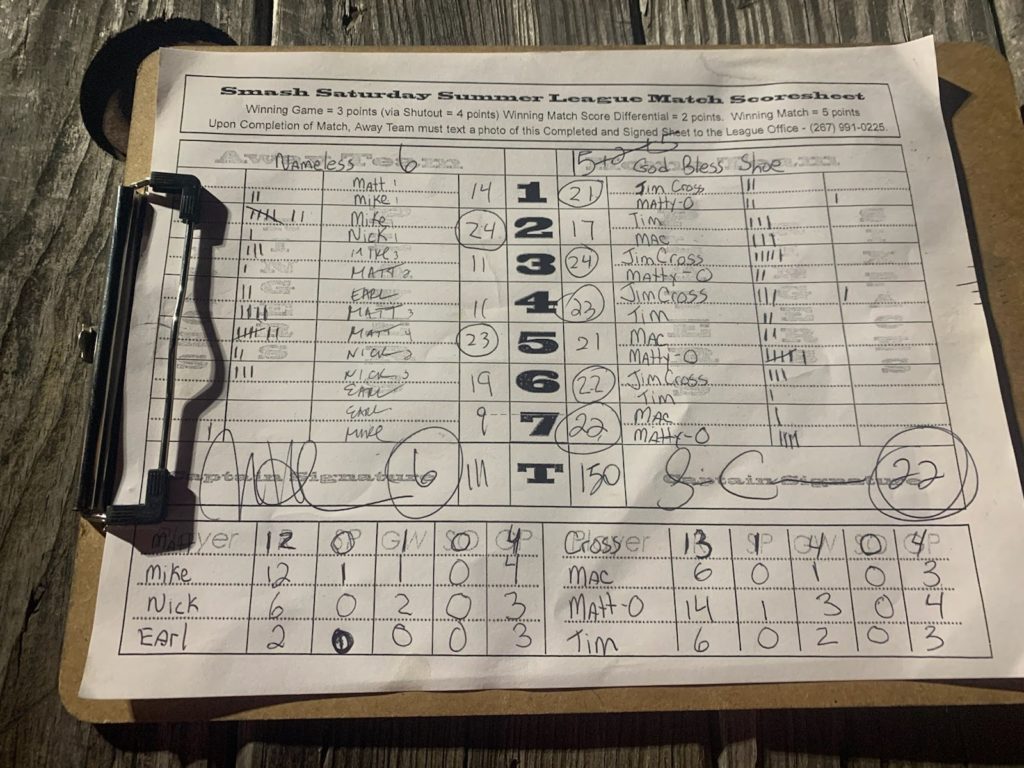 Smash Saturday Summer League Match Scoresheet
Winning Game = 3 points (via Shutout = 4 points) Winning Match Score Differential = 2 points. Winning Match = 5 points
Upon Completion of Match, Away Team must text a photo of this Completed and Signed Sheet to the League Office - (267) 991-0225.
Nameless 6 15+2+5 God Bless Shoe
Matt 1 14 1 21 Jim Cross
Mike 1 Matty-O
Mike 24 2 17 Tim
Nick 1 Mac
Mike 3 11 3 24 Jim Cross
Matt 2 Matty-O
Earl 11 4 23 Jim Cross
Matt 3 Tim
Matt 4 23 5 21 Mac
Nick 2 Matty-O
Nick 3 19 6 22 Jim Cross
Earl Tim
Earl 9 7 22 Mac
Mike Matty-O
Captain Signature 6 111 T 150 Captain Signature 22
12 0 1 0 4 Cross 13 1 4 0 4
Mike 12 1 1 0 4 Mac 6 0 1 0 3
Nick 6 0 2 0 3 Matt-O 14 1 3 0 4
Earl 2 0 0 0 3 Tim 6 0 2 0 3